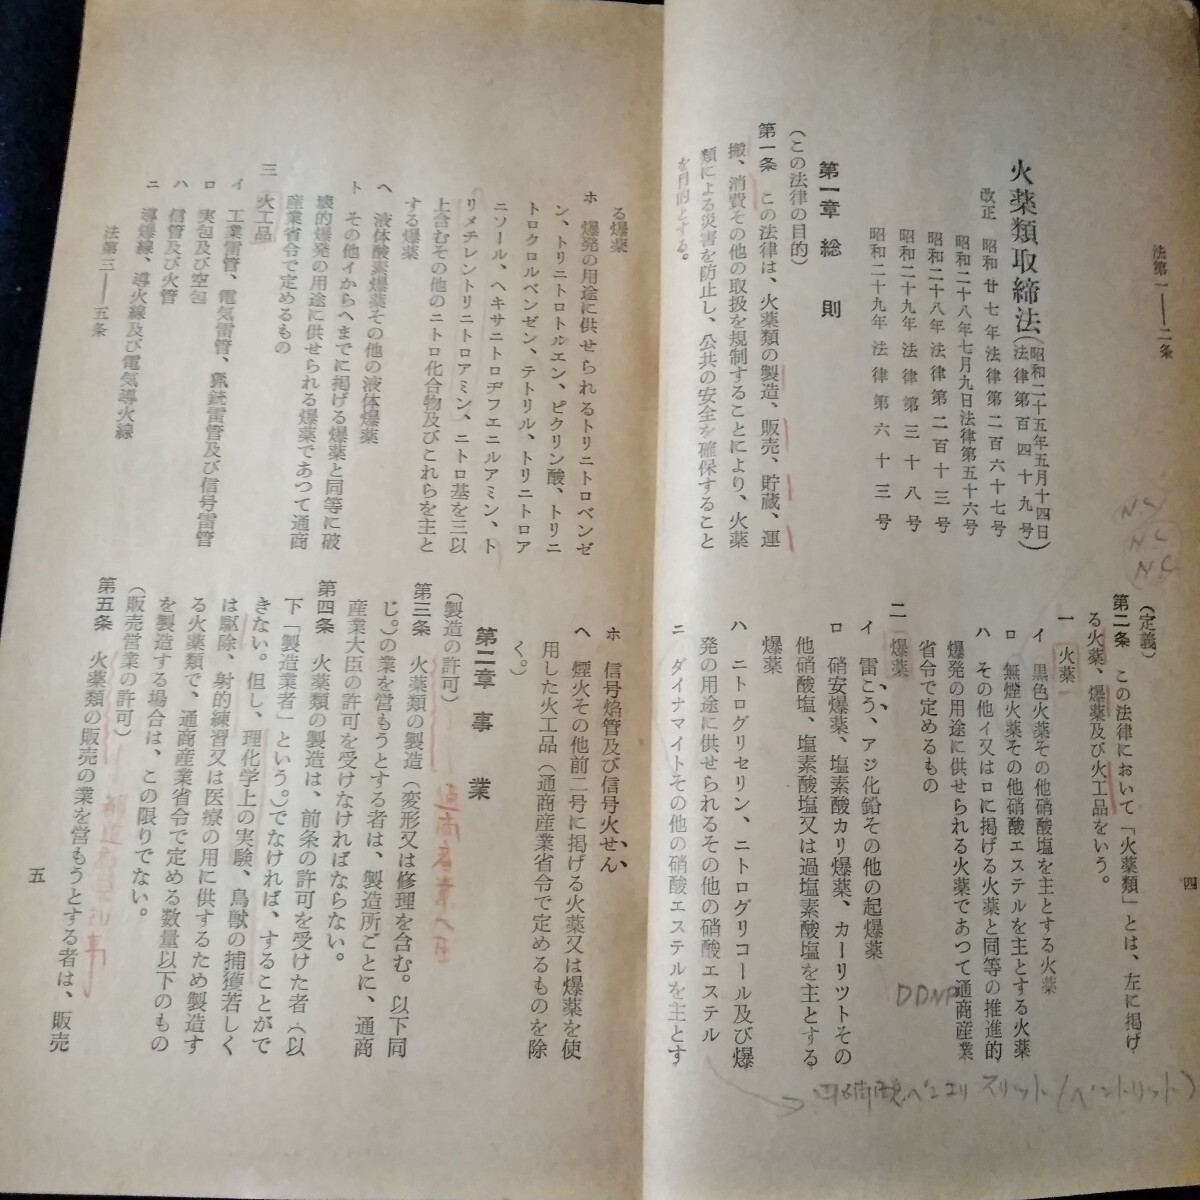 法第一——二条
火薬類取締法(昭和二十五年五月十四日法律第百四十九号)
改正 昭和廿七年法律第二百六十七号
昭和二十八年七月九日法律第五十六号
昭和二十八年法律第二百十三号
昭和二十九年法律第三十八号
昭和二十九年法律第六十三号
第一章 総則
(この法律の目的)
第一条 この法律は、火薬類の製造、販売、貯蔵、運
搬、消費その他の取扱を規制することにより、火薬
類による災害を防止し、公共の安全を確保すること
を目的とする。
(定義)
第二条 この法律において「火薬類」とは、左に掲げ
る火薬、爆薬及び火工品をいう。
一 火薬
イ 黒色火薬その他硝酸塩を主とする火薬
ロ 無煙火薬その他硝酸エステルを主とする火薬
ハ その他イ又はロに掲げる火薬と同等の推進的
爆発の用途に供せられる火薬であつて通商産業
省令で定めるもの
二 爆薬
イ 雷こう、アジ化鉛その他の起爆薬
ロ 硝安爆薬、塩素酸カリ爆薬、カーリツトその
他硝酸塩、塩素酸塩又は過塩素酸塩を主とする
爆薬
ハ ニトログリセリン、ニトログリコール及び爆
発の用途に供せられるその他の硝酸エステル
ニ ダイナマイトその他の硝酸エステルを主とす
四
NG
NC
NC
DDNP
スリット(ペントリット)
る爆薬
ホ 爆発の用途に供せられるトリニトロベンゼ
ン、トリニトロトルエン、ピクリン酸、トリニ
トロクロルベンゼン、テトリル、トリニトロア
ニソール、ヘキサニトロヂフエニルアミン、ト
リメチレントリニトロアミン、ニトロ基を三以
上含むその他のニトロ化合物及びこれらを主と
する爆薬
ヘ 液体酸素爆薬その他の液体爆薬
ト その他イからヘまでに掲げる爆薬と同等に破
壊的爆発の用途に供せられる爆薬であつて通商
産業省令で定めるもの
三 火工品
イ 工業雷管、電気雷管、銃用雷管及び信号雷管
ロ 実包及び空包
ハ 信管及び火管
ニ 導爆線、導火線及び電気導火線
法第三——五条
ホ 信号焔管及び信号火せん
ヘ 煙火その他前二号に掲げる火薬又は爆薬を使
用した火工品(通商産業省令で定めるものを除
く。)
第二章 事業
(製造の許可)
第三条 火薬類の製造(変形又は修理を含む。以下同
じ。)の業を営もうとする者は、製造所ごとに、通商
産業大臣の許可を受けなければならない。
第四条 火薬類の製造は、前条の許可を受けた者(以
下「製造業者」という。)でなければ、することがで
きない。但し、理化学上の実験、鳥獣の捕獲若しく
は駆除、射的練習又は医療の用に供するため製造す
る火薬類で、通商産業省令で定める数量以下のもの
を製造する場合は、この限りでない。
(販売営業の許可)
第五条 火薬類の販売の業を営もうとする者は、販売
五
通商産業大臣
都道府県知事